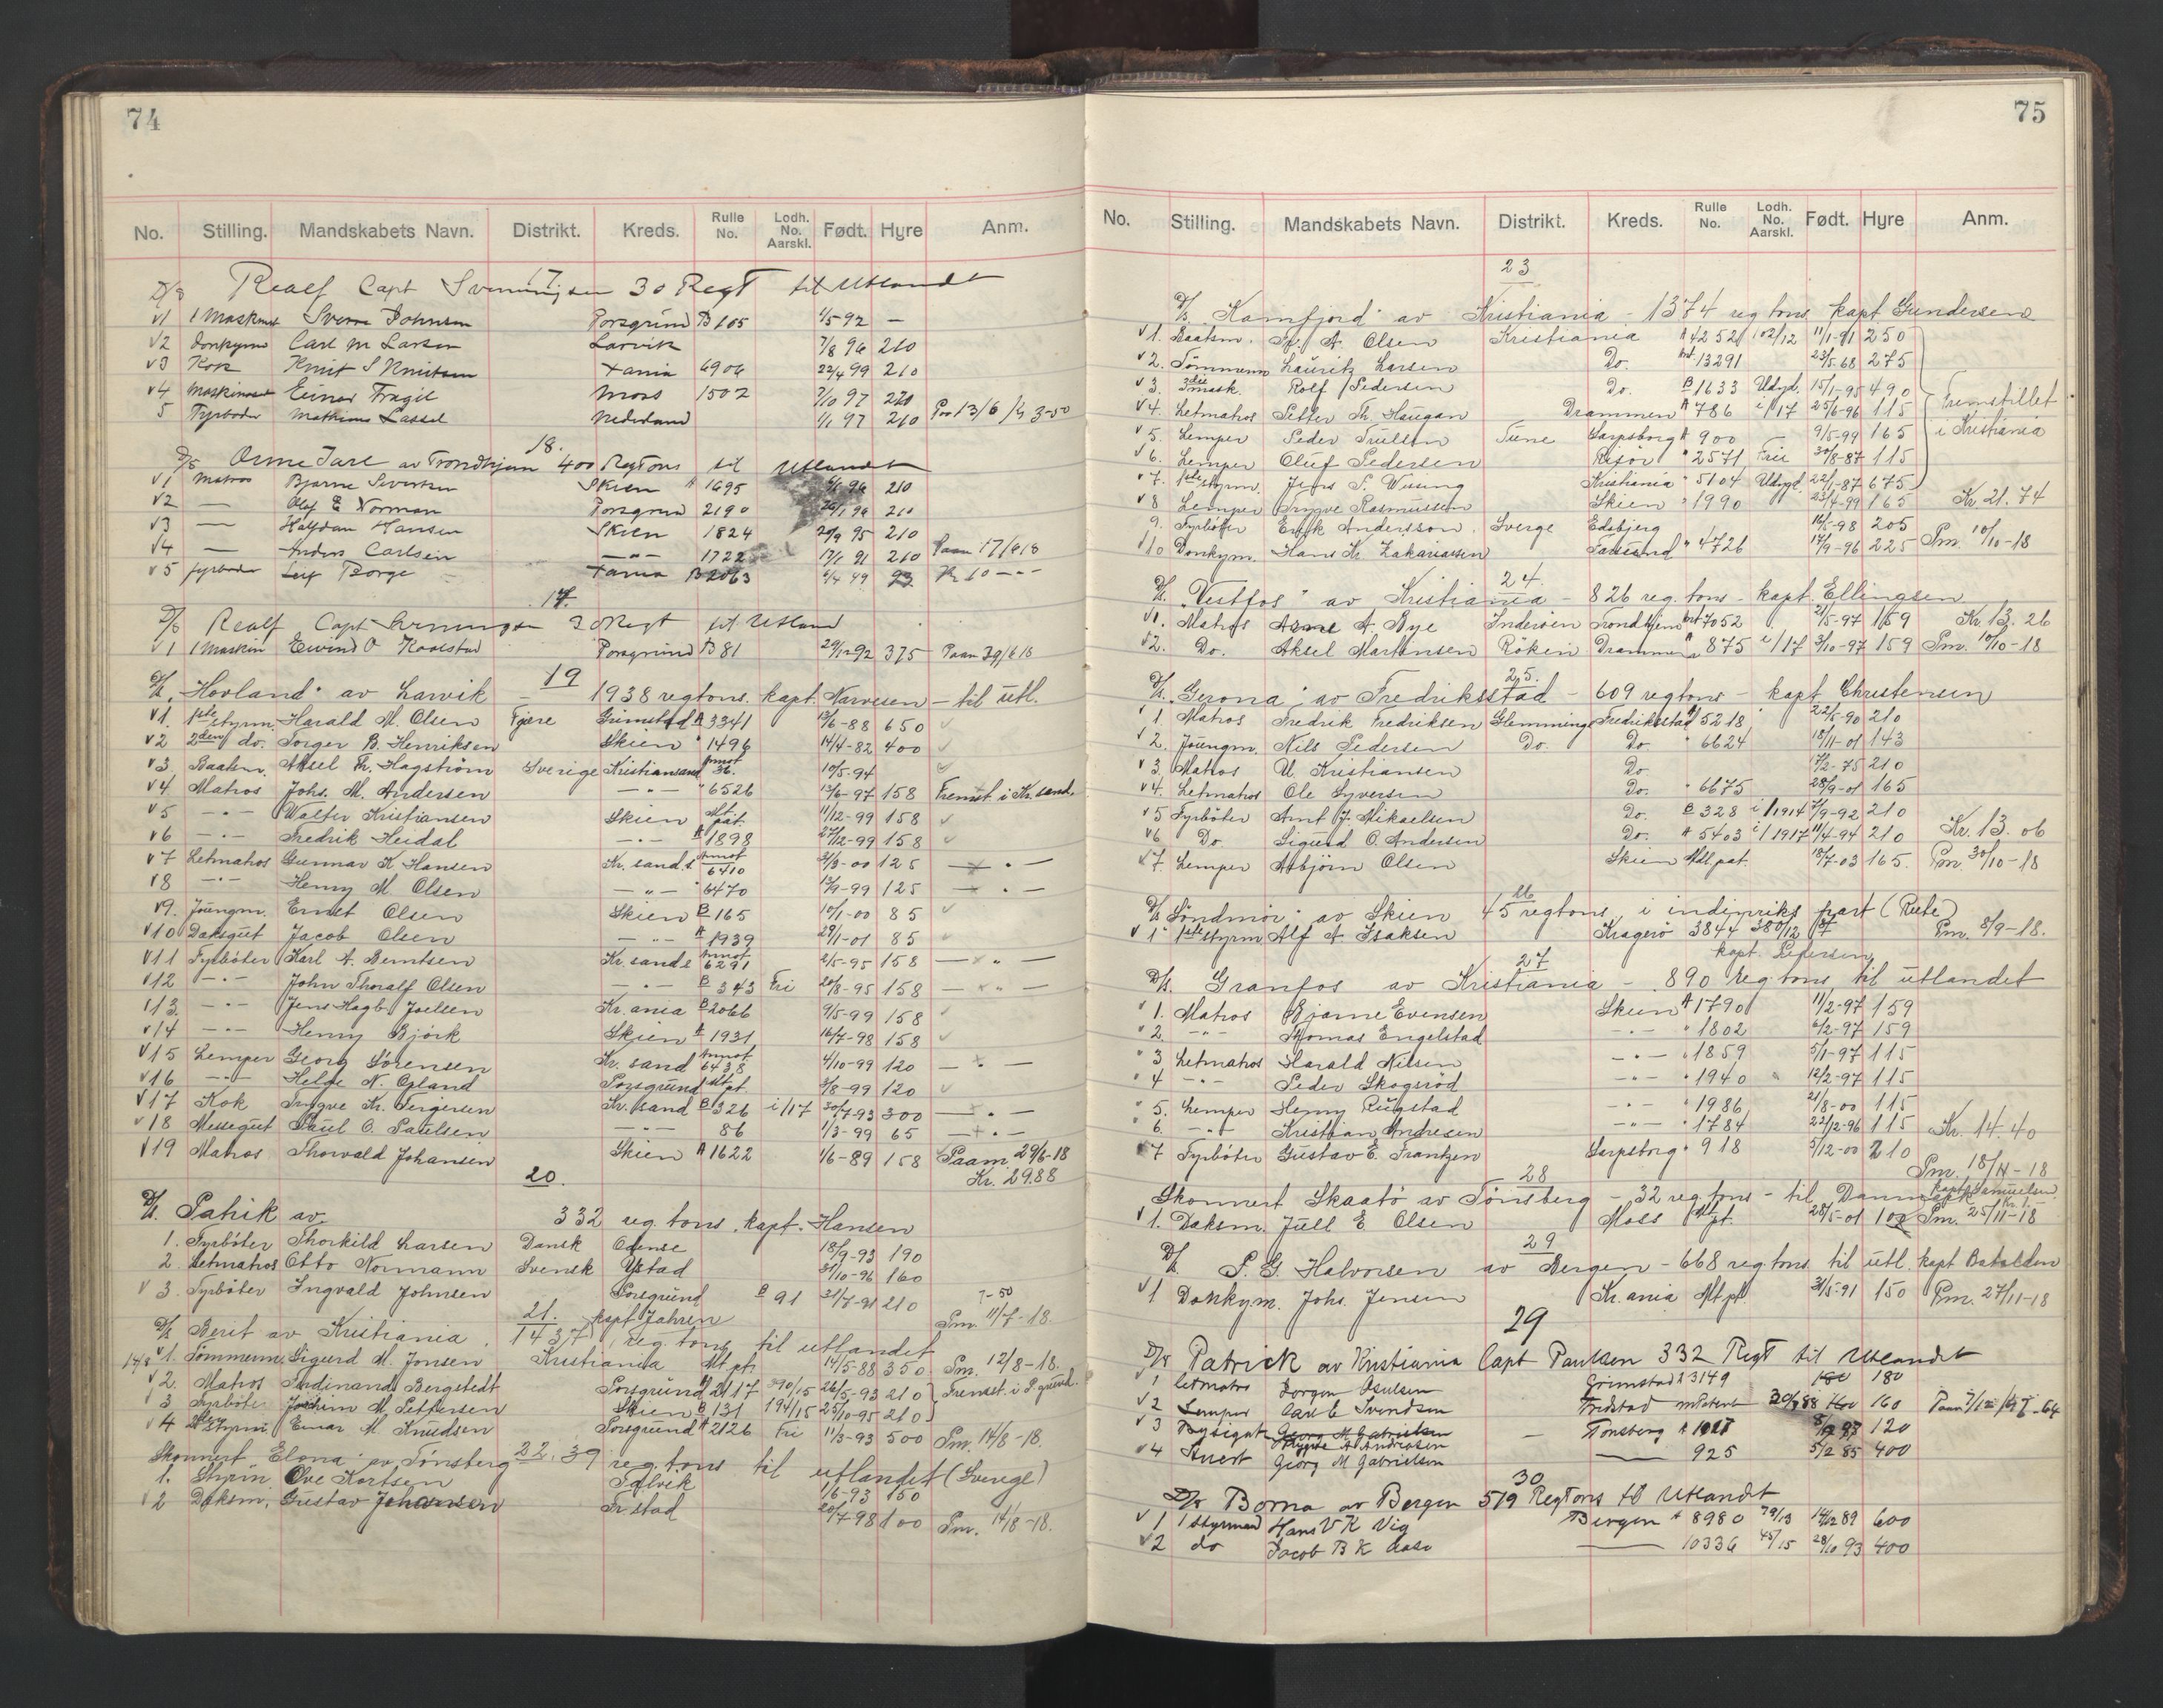 74
No. Stilling. Mandskabets Navn. Distrikt. Kreds. Rulle No. Lodh. No. Aarskl. Født. Hyre Anm.
17
D/S Realf Capt Svenningsen 30 Regt til Utlandt
v1 1 Maskinist Sverre Johnsen Porsgrund B 105 4/5 92 —
v2 Donkym Carl M Larsen Larvik 7/8 96 210
v3 Kok Knut S Knutsen Xania 6906 22/4 99 210
v4 Maskinassist Einar Fragil Moss 1502 7/10 97 220
5 Fyrbøder Mathias Lassel Nederland 1/1 97 210 Paa 13/6 Kr 3-50
18.
D/S Orme Jarl av Trondhjem 400 RegTons til Utlandet
v1 Matros Bjarne Sivertsen Skien A 1695 96 210
v2 — Olaf E Norman Porsgrund 2190 26/1 96 210
v3 — Halfdan Hansen Skien 1824 20/9 95 210
v4 — Anders Carlsen —"— 1722 17/1 91 210 Paam 17/6 18
v5 fyrbøder Leif Borge Xania B 2063 /4 99 93 Kr 10 - - -
17.
D/S Realf Capt Svenningsen 30 Regt til Utland
v1 1 Maskin Eivind O Kaalstad Porsgrund B 81 29/12 92 375 Paam 29/6 18
19
D/S „Hovland" av Larvik – 1938 regtons. kapt. Narvesen – til utl.
v1. 1ste styrm. Harald M. Olsen Fjære Grimstad A 3341 13/6-88 650 ✓
v2 2den do. Torger B. Henriksen Skien " 1496 14/4-82 400 ✓
v3. Baatsm. Aksel Th. Hagström Sverige Kristiansand Annot 36. 10/5-94 ✓
v4 Matros Johs. M. Andersen —"— " 6526 13/6-97 158 Fremst. i Kr.sand.
v5 —"— Walter Kristiansen Skien Mt. pat. 11/12-99 158 ✓
v6 —"— Fredrik Heidal —"— A 1898 27/12-99 158 ✓
v7 Letmatros Gunnar K Hansen Kr. sand. S. Annot 6410 3/3-00 125 — " —
v8 —"— Henry M Olsen —"— " 6470 13/9-99 125 — " —
v9. Jungm. Ernst Olsen Skien B 165 10/1-00 85 ✓
v10 Dæksgut Jacob Olsen —"— A 1939 29/1-01 85 ✓
v11 Fyrbøter Karl A. Berntsen Kr. sand S Annot 6291 2/5-95 158 — " —
v12 —"— John Thoralf Olsen —"— B 343 Fri 20/8-95 158 — " —
v13. —"— Jens Hagb. Joelsen Kr.ania B 2066 9/5-99 158 ✓
v14 —"— Henry Bjørk Skien A 1931 16/7-98 158 ✓
v15 Lemper Georg Sørensen Kr. sand Annot 6438 4/10-99 120 — " —
v16 —"— Helge N. Øgland Porsgrund Mt. pat 3/8-99 120 ✓
v17 Kok Trygve Kr. Tergersen Kr. sand B 326 i/17 30/7-93 300 — " —
v18 Messegut Paul O. Paulsen —"— 86 1/3-99 65 — " —
v19 Matros Thorvald Johansen Skien A 1622 1/6-89 158 Paam 29/6-18
Kr. 29.88
20.
D/S Patrik av 332 reg. tons. kapt. Hansen
1. Fyrbøter Thorkild Larsen Dansk Odense 18/9-93 190
2. Letmatros Otto Normann Svensk Ystad 31/10-96 160
v3. Fyrbøter Ingvald Johnsen Porsgrund B 91 31/7-91 210 7-50
Pm. 11/7-18.
21. kapt Jahren
D/S Berit av Kristiania. 1437 reg. tons til utlandet
14/8 v1. Tømmerm. Sigurd M. Jonsen Kristiania Mt.pt. 14/5-88 350 Pm. 12/8-18.
v2. Matros Ferdinand Bergstedt Porsgrund A 2117 390/15 26/5-93 210 } Fremst. i P.grund.
v3 Fyrbøter Joachim M. Pettersen Skien B 131 194/15 25/10-95 210 }
v4 Styrm. Einar M. Knudsen Porsgrund A 2126 Fri 11/3-93 500 Pm. 14/8-18.
Skonnert „Elona" av Tønsberg 22. 39 reg. tons til utlandet (Sverige)
1. Styrm. Ove Kortsen Talvik 1/6-93 150
v2 Dæksm. Gustav Johansen Fr.stad 20/7-98 100 Pm. 14/8-18.
75
No. Stilling. Mandskabets Navn. Distrikt. Kreds. Rulle No. Lodh. No. Aarskl. Født. Hyre Anm.
23
D/S „Kamfjord" av Kristiania – 1374 reg tons kapt Gundersen
v1. Baatsm. Fr. A. Olsen Kristiania A 4252 102/12 11/1-91 250
v2. Tømmerm Lauritz Larsen Do. Ant. 13291 23/5-68 275
v3. 3die mask. Rolf Pedersen Do. B 1633 Udsyd. 15/1-95 490
v4. Letmatros Petter Th. Haugan Drammen A 786 i/17 25/6-96 115 Fremstillet
v5. Lemper Peder Truelsen Tune Sarpsborg A 900 9/5-99 165 i Kristiania
v6. Lemper Oluf Pedersen Risør " 2571 Fri 30/8-87 115
v7. 1ste styrm. Jens S. Wising Kristiania " 5104 Udsyd. 22/1-87 675
v8 Lemper Trygve Rasmussen Skien " 1990 23/4-99 165 Kr. 21.74
9. Fyrbøter Erik Andersson. Sverge Edsbjerg 16/5-98 205
v10 Donkym. Hans Kr. Zakariassen Farsund " 4726 17/9-96 225 Pm. 10/10-18
24.
D/S. „Vestfos" av Kristiania – 826 reg. tons – kapt. Ellingsen
v1. Matros Arne A. Bye Inderøen Trondhjem 7052 21/5-97 159 Kr. 13.26
v2. Do. Aksel Martensen Røken Drammen A 875 i/17 3/10-97 159 Pm. 10/10-18
25.
D/S. „Gerona" av Fredriksstad – 609 regtons – kapt Christensen
v1. Matros Fredrik Fredriksen Glemminge Fredriksstad 5218 22/5-90 210
v2. Jungm. Nils Pedersen Do. Do. " 6624 18/11-01 143
v3. Matros U. Kristiansen Do 7/2-75 210
v4. Letmatros Ole Syversen Do. " 6675 28/9-01 165
v5 Fyrbøter Arnt J. Mikaelsen Do. B 328 i/1914 7/9-92 210
v6 Do Sigurd O. Andersen Do. A 5403 i/1917 11/4-94 210 Kr. 13.06
v7. Lemper Asbjørn Olsen Skien Mdl.pat. 18/7-03 165. Pm. 30/10-18
26
D/S Søndmør" av Skien 45 regtons i indenriks fart (Rute)
v1 1ste styrm Alf A. Isaksen Kragerø 3844 380/12 Pm. 8/9-18.
27 kapt. Pedersen
D/S. Granfos av Kristiania – 890 reg tons til utlandet
v1. Matros Bjarne Evensen Skien A 1790 11/2-97 159
v2. —"— Thomas Engelstad —"— " 1802 6/2-97 159
" 3 Letmatros Harald Nilsen —"— " 1859 5/1-97 115
" 4 —"— Peder Skogsrød —"— " 1940 12/2-97 115
" 5. Lemper Henry Rugstad —"— " 1986 21/8-00 115
" 6. —"— Kristian Andresen —"— " 1784 22/12-96 115 Kr. 14.40
7 Fyrbøter Gustav E. Frantzen Sarpsborg " 918 5/12-00 210
Pm. 18/11-18
28
Skonnert Skaatø av Tønsberg – 32 reg tons – til Danmark kapt Samuelsen
v1. Dæksm. Jull E Olsen Moss Mt.pt. 28/5-01 100 Pm. 25/11-18
29
D/S P. G. Halvorsen av Bergen – 668 reg. tons til utl. kapt Batalden
v1 Donkym. Johs. Jensen Kr.ania Mt.pt. 31/5-91 150 Pm. 27/11-18
29
D/S Patrick av Kristiania Capt Paulsen 332 Regt til Utlandet
v1 Letmatros Jørgen Asulsen Grimstad 23149 180 180
v2 Lemper Carl E Svendsen Fridstad mPatent 30/8 88 160 160
v3 Byssgut Georg M Gabrielsen Trygve A Andreasen – Tønsberg A 1017 8/9 97 120
v4 Stuert Georg M Gabrielsen — 925 5/2 85 400
30
D/S Borna av Bergen 519 RegTons til Utlandt
v1 1 Styrmand Hans V K Vig Bergen A 8980 79/13 14/12 89 600
v2 do Jacob B K Aase — 10336 45/15 28/10 93 400